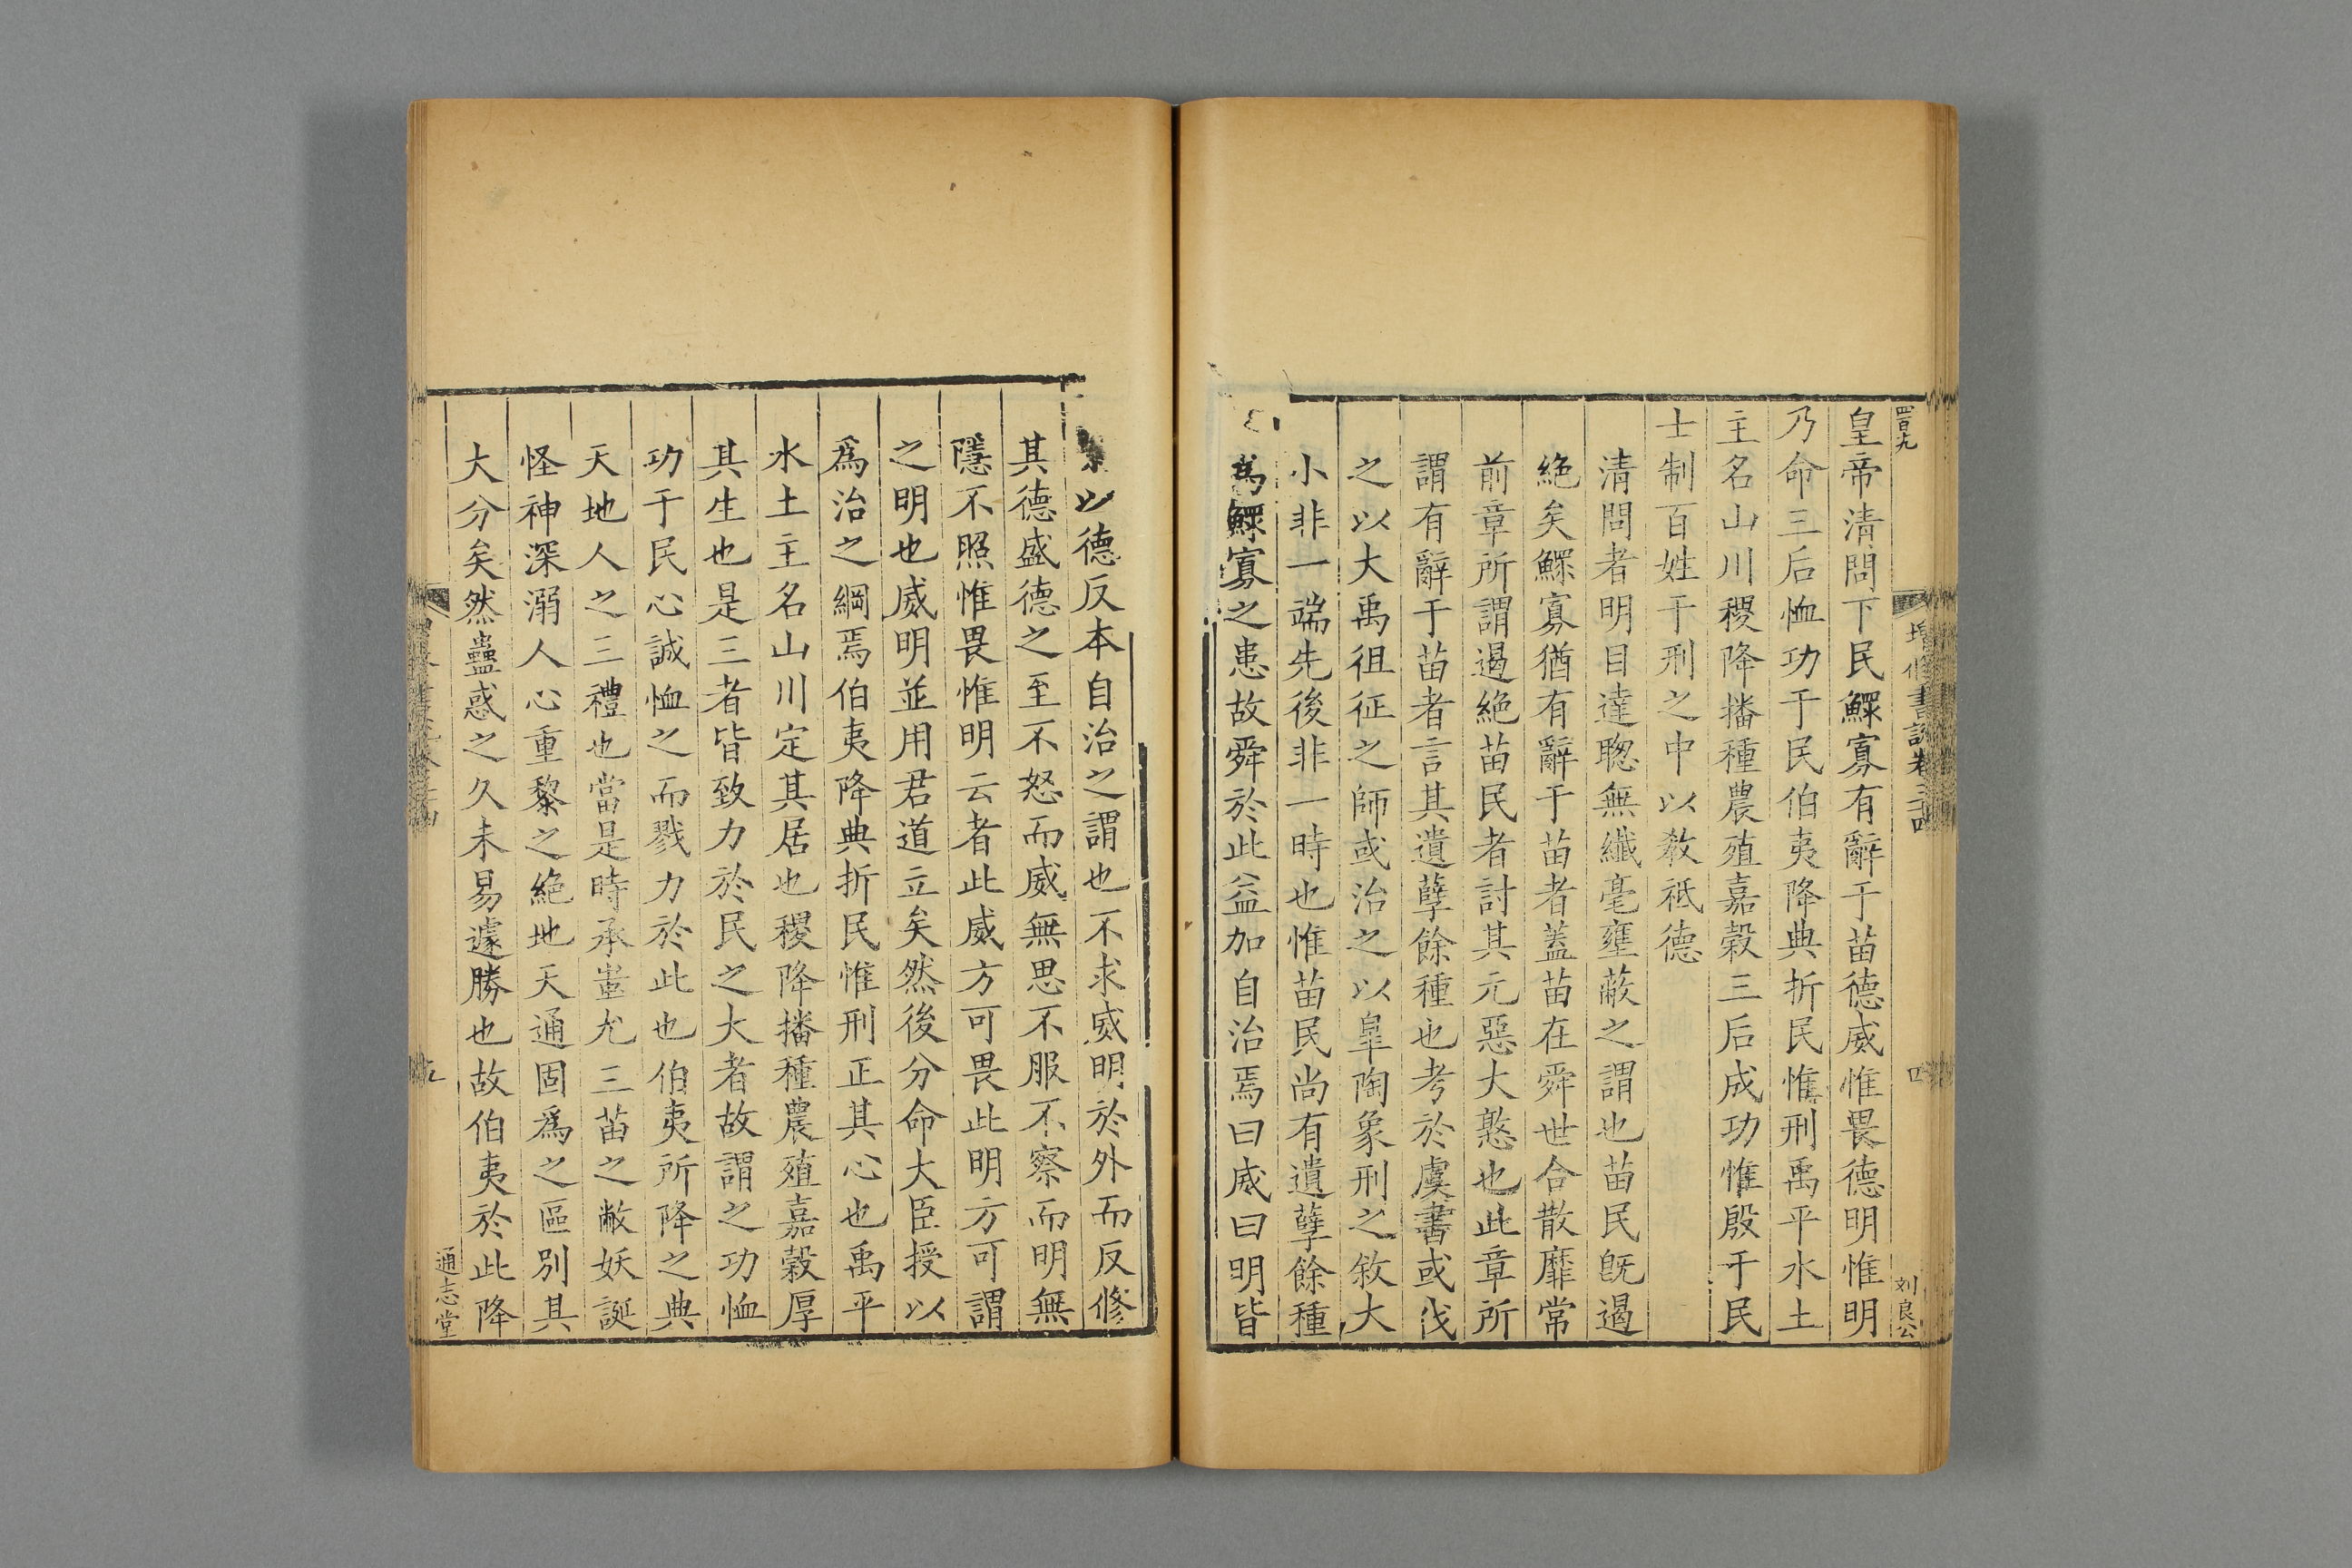 四百九
增修書說卷三十四
四
刘良公
皇帝清問下民鰥寡有辭于苗德威惟畏德明惟明
乃命三后恤功于民伯夷降典折民惟刑禹平水土
主名山川稷降播種農殖嘉榖三后成功惟殷于民
士制百姓于刑之中以敎祗德
清問者明目達聦無纖毫壅蔽之謂也苗民旣遏
絶矣鰥寡猶有辭于苗者蓋苗在舜世合散靡常
前章所謂遏絶苗民者討其元惡大憝也此章所
謂有辭于苗者言其遺孽餘種也考於虞書或伐
之以大禹徂征之師或治之以皐陶象刑之敘大
小非一端先後非一時也惟苗民尚有遺孽餘種
爲鰥寡之患故舜於此益加自治焉曰威曰明皆
以德反本自治之謂也不求威明於外而反修
其德盛德之至不怒而威無思不服不察而明無
隱不照惟畏惟明云者此威方可畏此明方可謂
之明也威明並用君道立矣然後分命大臣授以
爲治之綱焉伯夷降典折民惟刑正其心也禹平
水土主名山川定其居也稷降播種農殖嘉榖厚
其生也是三者皆致力於民之大者故謂之功恤
功于民心誠恤之而戮力於此也伯夷所降之典
天地人之三禮也當是時承蚩尤三苗之敝妖誕
怪神深溺人心重黎之絶地天通固爲之區別其
大分矣然蠱惑之久未易遽勝也故伯夷於此降
通志堂